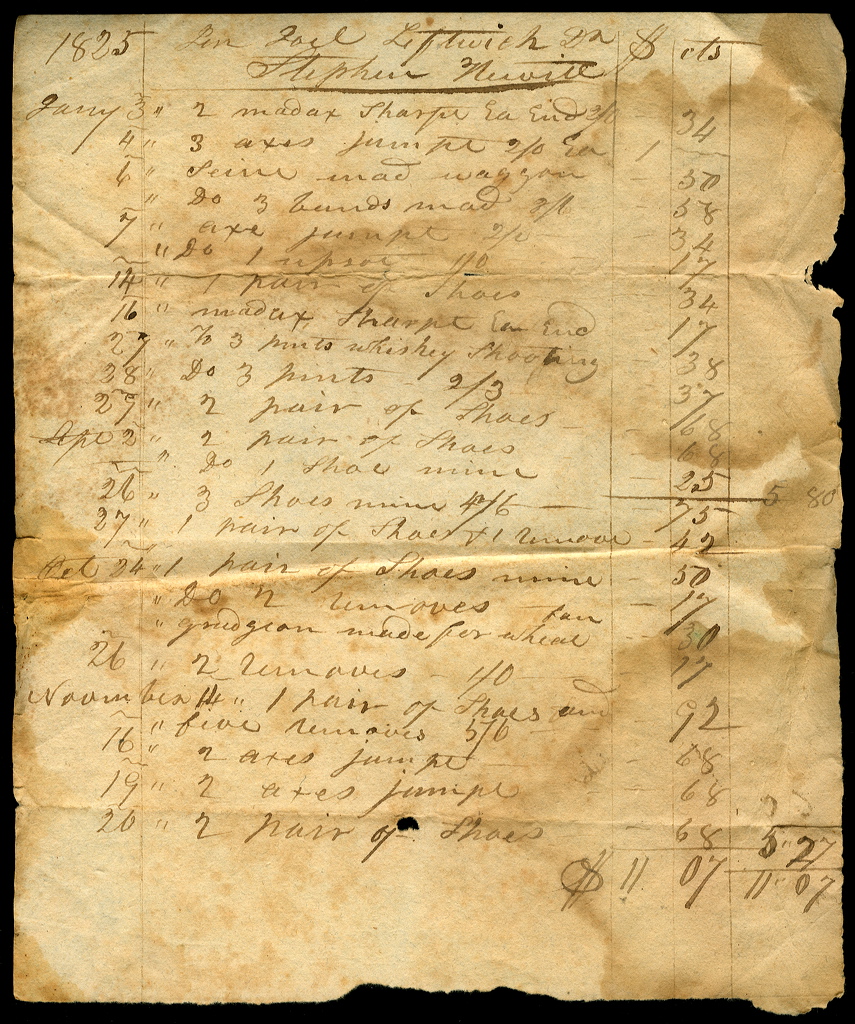 1825 Gen Joel Leftwich Dr $ cts
Stephen Newitt
Jany 3 " 2 madax Sharpt Ea End 2/0 - 34
4 " 3 axes jumpt 2/0 Ea 1
6 " Seine mad waggon - 50
" Do 3 bands mad 3/6 - 58
7 " axe jumpt 2/0 - 34
" Do 1 upset 1/0 - 17
14 " 1 pair of Shoes - 34
16 " madax Sharpt Ea End 17
27 " To 3 pints whiskey Shooting 38
28 " Do 3 pints - 2/3 - 37
29 " 2 pair of Shoes - 68
Sept 2 " 2 pair of Shoes - 68
" Do 1 Shoe mine - 25 5 80
26 " 3 Shoes mine 4/6 - 75
27 " 1 pair of Shoes & 1 remove - 42
Oct 24 " 1 pair of Shoes mine - 50
" Do 2 removes - 17
" gradgeon made for wheat fan - 30
26 " 2 removes - 1/0 - 17
November 14 " 1 pair of Shoes and
" five removes 5/6 - 92
16 " 2 axes jumpt - 68
19 " 2 axes jumpt - 68
20 " 2 pair of Shoes - 68 5" 27
$ 11 07 11" 07